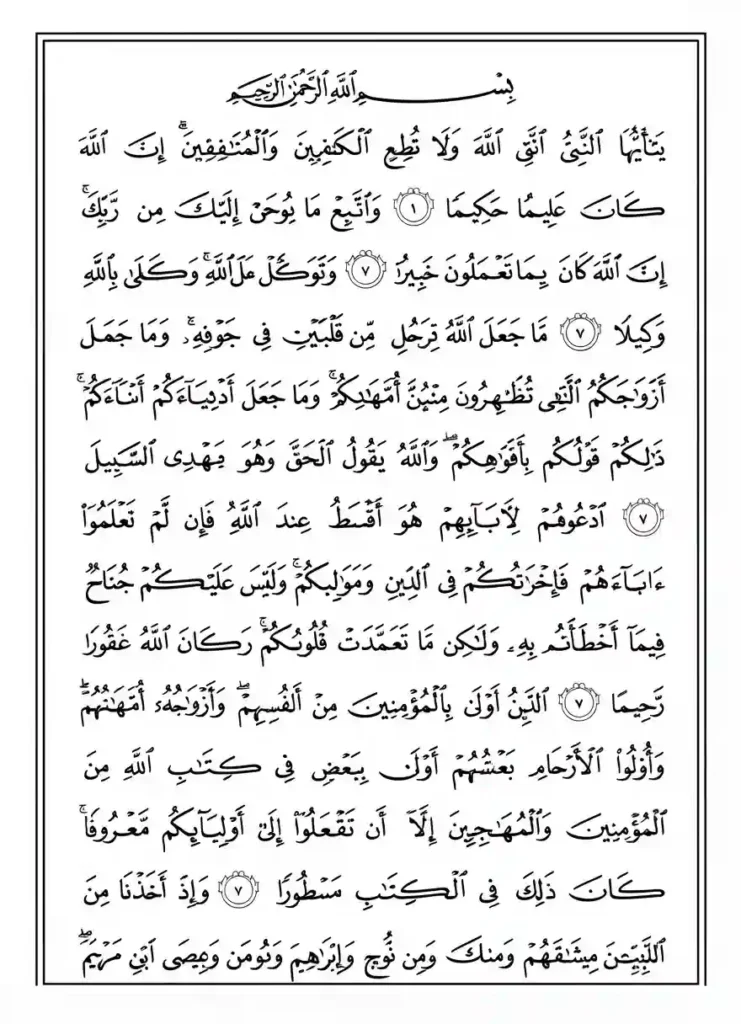 بِسْمِ ٱللَّهِ ٱلرَّحْمَٰنِ ٱلرَّحِيمِ
يَٰٓأَيُّهَا ٱلنَّبِىُّ ٱتَّقِ ٱللَّهَ وَلَا تُطِعِ ٱلْكَٰفِيِينَ وَٱلْمُتَٰفِقِينَ ۗ إِنَّ ٱللَّهَ
كَانَ عَلِيمًا حَكِيمًا ١ وَٱتَّبِعْ مَا يُوحَىٰ إِلَيْكَ مِن رَّبِّكَ ۚ
إِنَّ ٱللَّهَ كَانَ بِمَا تَعْمَلُونَ خَبِيرًا ٧ وَتَوَكَّلْ عَلَ ٱللَّهِ ۚ وَكَلَىٰ بِٱللَّهِ
وَكِيلًا ٧ مَّا جَعَلَ ٱللَّهُ تِرَحُلٍ مِّن قَلْبَيْنِ فِى جَوْفِهِۦ ۚ وَمَا جَمَلَ
أَزْوَٰجَكُمُ ٱلَّٰٓـِٔى تُظَٰهِرُونَ مِنْهُنَّ أُمَّهَٰتِكُمْ ۚ وَمَا جَعَلَ أَدْعِيَآءَكُمْ أَبْنَآءَكُمْ ۚ
ذَٰلِكُمْ قَوْلُكُم بِأَفْوَٰهِكُمْ ۖ وَٱللَّهُ يَقُولُ ٱلْحَقَّ وَهُوَ يَهْدِى ٱلسَّبِيلَ
٧ ٱدْعُوهُمْ لِأَبَآئِهِمْ هُوَ أَقْسَطُ عِندَ ٱللَّهِ فَإِن لَّمْ تَعْلَمُوٓا۟
ءَابَآءَهُمْ فَإِخْرَٰتُكُمْ فِى ٱلدِّينِ وَمَوَٰلِيكُمْ ۚ وَلَيْسَ عَلَيْكُمْ جُنَاحٌ
فِيمَآ أَخْطَأْتُم بِهِۦ وَلَٰكِن مَّا تَعَمَّدَتْ قُلُوبُكُمْ ۚ رَكَانَ ٱللَّهُ غَفُورًا
رَّحِيمًا ٧ ٱلنَّبِىُّ أَوْلَىٰ بِٱلْمُؤْمِنِينَ مِنْ أَلفُسِهِمْ ۖ وَأَزْوَٰجُهُۥٓ أُمَّهَٰتُهُمْ ۗ
وَأُو۟لُوا۟ ٱلْأَرْحَامِ بَعْشُهُمْ أَوْلَىٰ بِبَعْضٍ فِى كِتَٰبِ ٱللَّهِ مِنَ
ٱلْمُؤْمِنِينَ وَٱلْمُهَٰجِرِينَ إِلَّآ أَن تَفْعَلُوٓا۟ إِلَىٰٓ أَوْلِيَآئِكُم مَّعْرُوفًا ۚ
كَانَ ذَٰلِكَ فِى ٱلْكِتَٰبِ مَسْطُورًا ٧ وَإِذْ أَخَذْنَا مِنَ
ٱللَّبِيِّـۧنَ مِيثَٰقَهُمْ وَمِنكَ وَمِن نُّوحٍ وَإِبْرَٰهِيمَ وَعِيصَى ٱبْنِ مَرْيَمَ ۖ